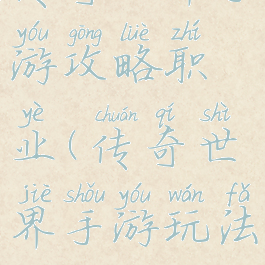 yóu gōng lüè zhí
游攻略职
yè chuán qí shì
业(传奇世
jiè shǒu yóu wán fǎ
界手游玩法